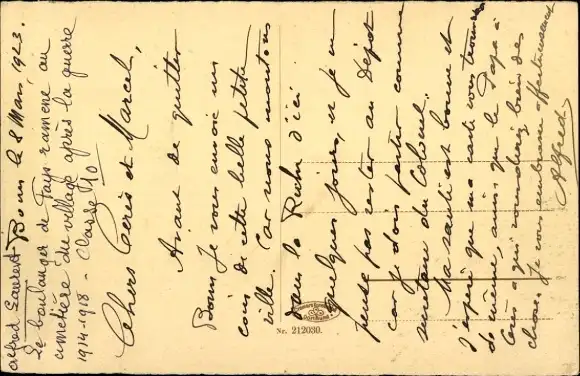 Alfred Laurent
Le boulanger de Fays ramené au
cimetière du village après la guerre
1914-1918 - Classe 10
Bonn le 8 Mars, 1923.
Chers Cérès et Marcel,
Avant de quitter
Bonn je vous envoie un
coin de cette belle petite
ville. Car nous montons
dans la Ruhr d'ici
quelques jours, et je ne
pense pas rester au Dépôt
car je dois partir comme
secrétaire du Colonel.
Ma santé est bonne et
J'espère que ma carte vous trouvera
de même, ainsi que le Papa à
Cérès a qui vous direz bien des
choses. Je vous embrasse affectueusement
Alfred
Nr. 212030.